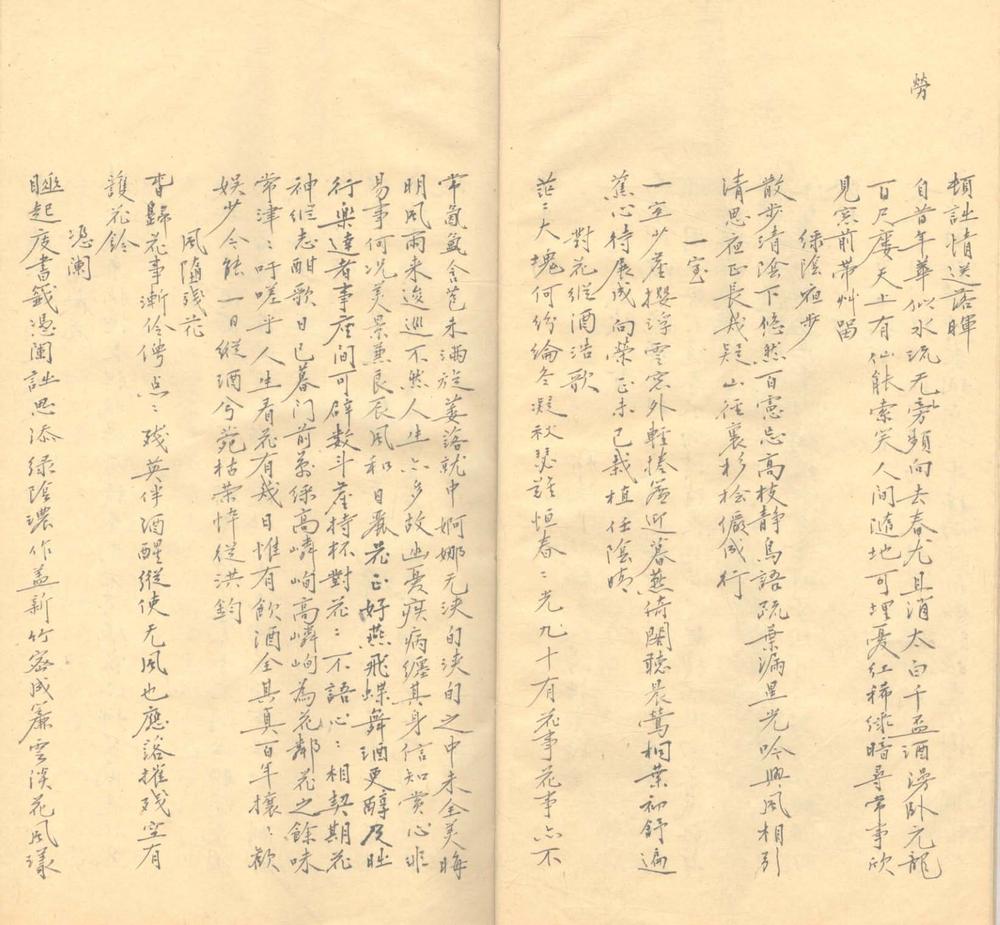 勞
頓詘情送落暉
自昔年華似水流无旁頻向去春尤且消太白千盃酒漫臥元龍
百尺廔天上有仙能索笑人間隨地可埋憂紅稀綠暗尋常事欣
見窓前帶艸留
綠陰夜步
散步清陰下悠然百憲忘高枝静鳥語疏葉漏星光吟興風相引
清思夜正長我疑山徑裏杉檜儼成行
一室
一室少塵攖浮雲窓外輕捲簾迎暮燕倚闌聽晨鶯桐葉初舒遍
蕉心待展成向榮正未已栽植任陰晴
對花縱酒浩歌
茫=大塊何紛綸冬凝秋瑟難恒春=光九十有花事花事亦不
常氤氲含苞未満旋萎落就中婀娜无泱的泱的之中未全美晦
明風雨来逡巡不然人生亦多故幽憂疾病纏其身信知賞心非
易事何況美景兼良辰風和日麗花正好燕飛蝶舞酒更醇及时
行樂達者事座間可辟数斗塵持杯對花=不語心=相契期花
神縱志酣歌日已暮门前萬綠高嶙峋高嶙峋為花鄰花之餘味
常津=吁嗟乎人生看花有幾日惟有飲酒全其真百年攘=歡
娱少今能一日縱酒兮菀枯荣悴從洪鈞
風隨殘花
香歸花事漸伶俜点=殘英伴酒醒縱使无風也應落摧殘空有
護花鈴
憑闌
睡起廢書籤憑闌詘思添綠陰濃作盖新竹密成簾雲淡花風漾